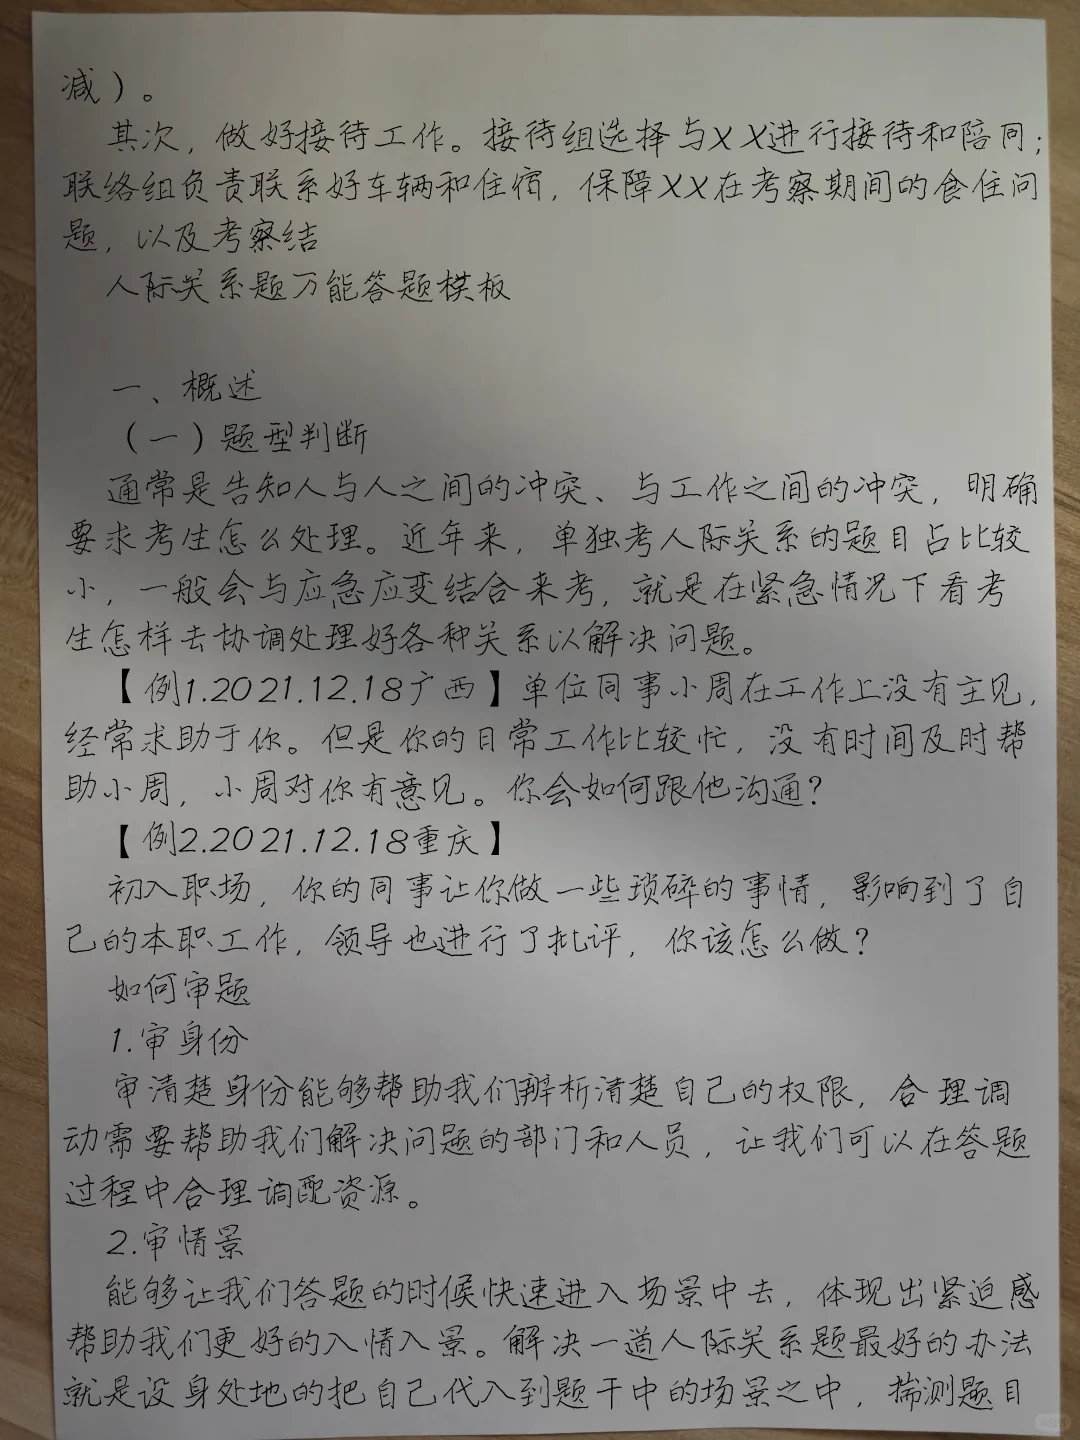 减）。
其次，做好接待工作。接待组选择与XX进行接待和陪同；
联络组负责联系好车辆和住宿，保障XX在考察期间的食住问
题，以及考察结
人际关系题万能答题模板
一、概述
（一）题型判断
通常是告知人与人之间的冲突、与工作之间的冲突，明确
要求考生怎么处理。近年来，单独考人际关系的题目占比较
小，一般会与应急应变结合来考，就是在紧急情况下看考
生怎样去协调处理好各种关系以解决问题。
【例1.2021.12.18广西】单位同事小周在工作上没有主见，
经常求助于你。但是你的日常工作比较忙，没有时间及时帮
助小周，小周对你有意见。你会如何跟他沟通？
【例2.2021.12.18重庆】
初入职场，你的同事让你做一些琐碎的事情，影响到了自
己的本职工作，领导也进行了批评，你该怎么做？
如何审题
1.审身份
审清楚身份能够帮助我们辨析清楚自己的权限，合理调
动需要帮助我们解决问题的部门和人员，让我们可以在答题
过程中合理调配资源。
2.审情景
能够让我们答题的时候快速进入场景中去，体现出紧迫感
帮助我们更好的入情入景。解决一道人际关系题最好的办法
就是设身处地的把自己代入到题干中的场景之中，揣测题目